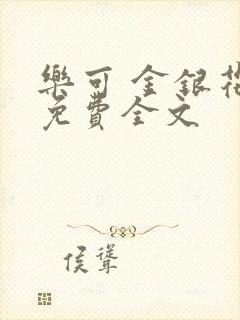 樂可 金銀花
免費全文
侯聳